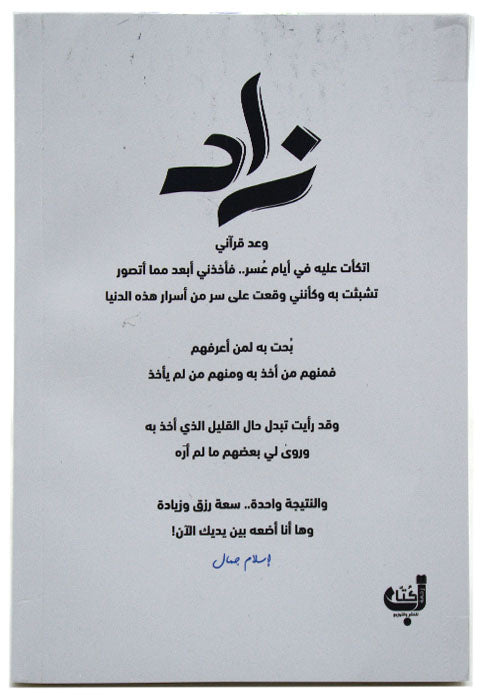 زاد
وعد قرآني
اتكأت عليه في أيام عُسر.. فأخذني أبعد مما أتصور
تشبثت به وكأنني وقعت على سر من أسرار هذه الدنيا
بُحت به لمن أعرفهم
فمنهم من أخذ به ومنهم من لم يأخذ
وقد رأيت تبدل حال القليل الذي أخذ به
وروى لي بعضهم ما لم أرَه
والنتيجة واحدة.. سعة رزق وزيادة
وها أنا أضعه بين يديك الآن!
إسلام جمال
كُتّاب
للنشر والتوزيع